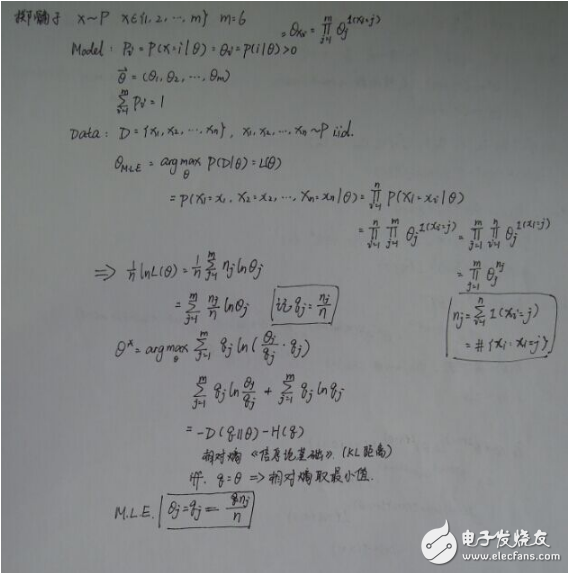 掷骰子 X~P X∈{1, 2, ⋯, m} m=6
= θ_{x_i} = ∏_{j=1}^{m} θ_j^{1(x_i=j)}
Model: P_i = P(X=i|θ) = θ_i = P(i|θ) > 0
θ⃗ = (θ_1, θ_2, ⋯, θ_m)
∑_{i=1}^{m} P_i = 1
Data: D = {x_1, x_2, ⋯, x_n}, x_1, x_2, ⋯, x_n ~ P iid.
θ_{MLE} = arg max_θ P(D|θ) = L(θ)
= P(X_1=x_1, X_2=x_2, ⋯, X_n=x_n|θ) = ∏_{i=1}^{n} P(X_i=x_i|θ)
= ∏_{i=1}^{n} ∏_{j=1}^{m} θ_j^{1(x_i=j)} = ∏_{j=1}^{m} ∏_{i=1}^{n} θ_j^{1(x_i=j)}
= ∏_{j=1}^{m} θ_j^{n_j}
n_j = ∑_{i=1}^{n} 1(x_i=j)
= #{x_i: x_i=j}
⇒ 1/n ln L(θ) = 1/n ∑_{j=1}^{m} n_j ln θ_j
= ∑_{j=1}^{m} n_j/n ln θ_j 记 q_j = n_j/n
θ* = arg max_θ ∑_{j=1}^{m} q_j ln(θ_j/q_j · q_j)
∑_{j=1}^{m} q_j ln θ_j/q_j + ∑_{j=1}^{m} q_j ln q_j
= -D(q||θ) - H(q)
相对熵《信息论基础》. (KL距离)
iff. q=θ ⇒ 相对熵取最小值.
M.L.E. θ_j = q_j = n_j/n
电子发烧友
www.elecfans.com